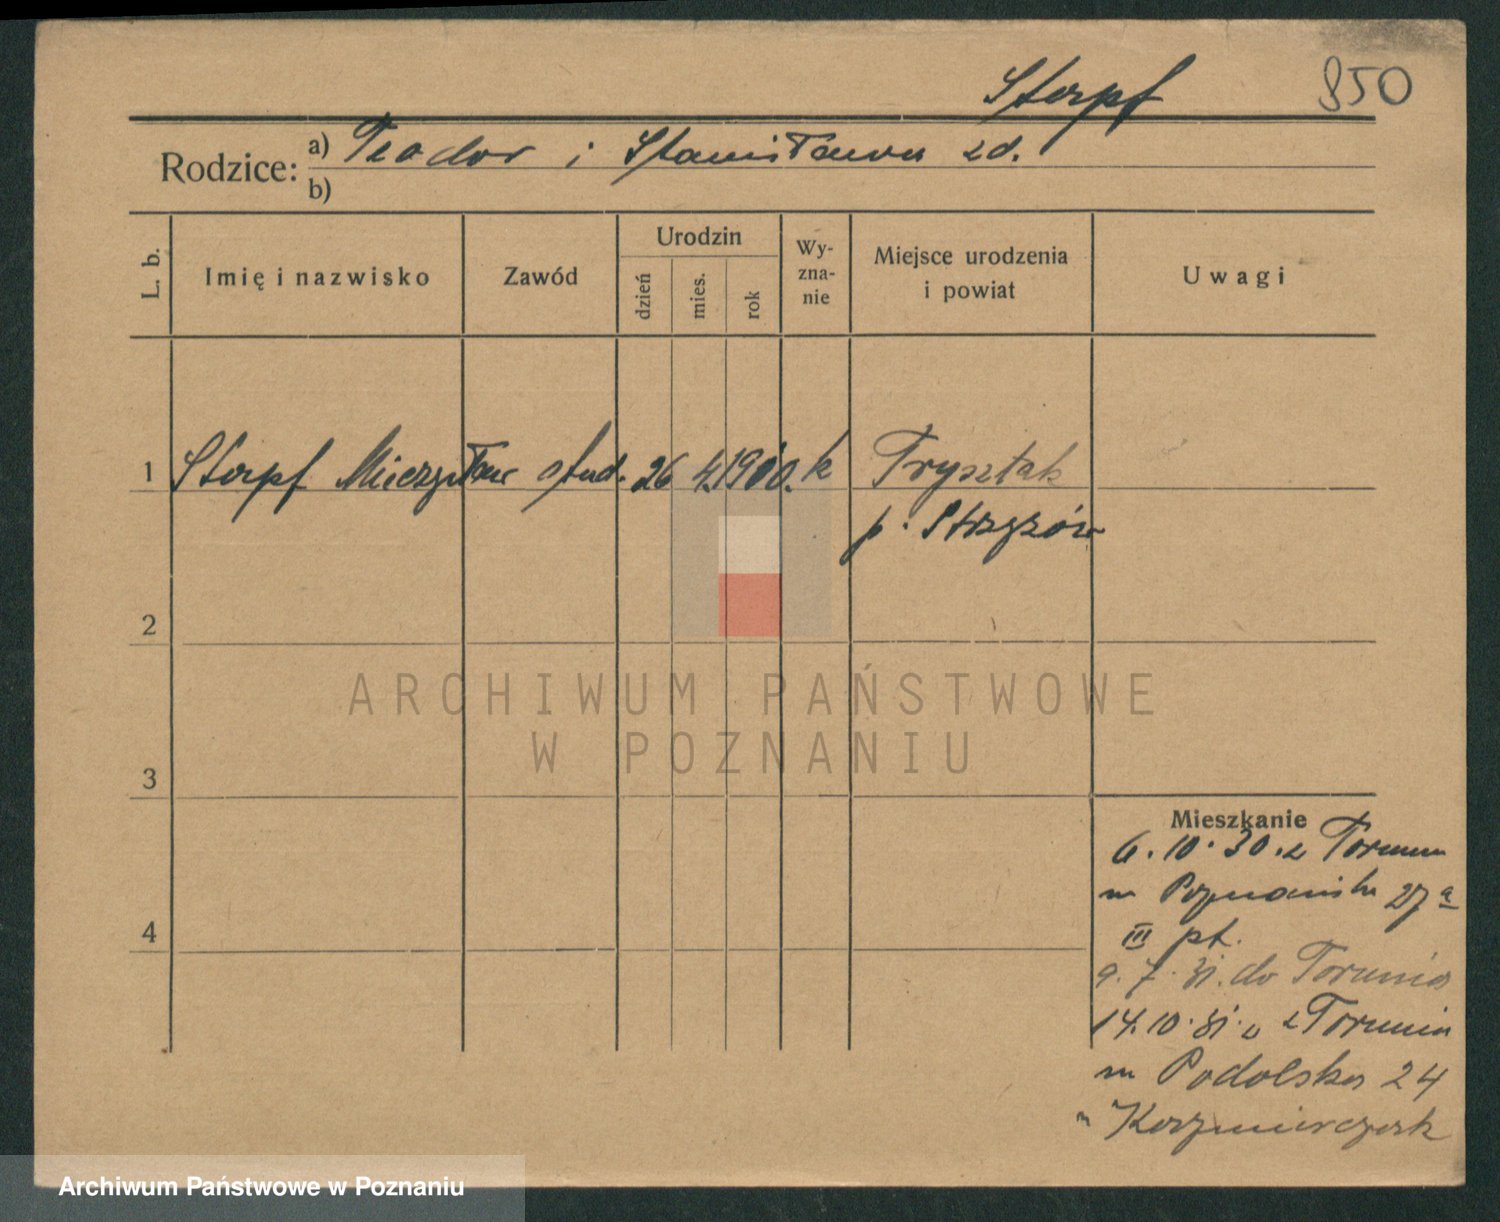 Storpf 850
Rodzice: a) Teodor i Stanisława zd.
b)
L. b. Imię i nazwisko Zawód Urodzin dzień mies. rok Wy-zna-nie Miejsce urodzenia i powiat Uwagi
1 Storpf Mieczysław stud. 26 4. 1910. k Frysztak
p. Strzyżów
2
3
Mieszkanie
6. 10. 30. z Torunia
Poznańska 27 a
4
III pt.
9. 7. 31. do Torunia
14. 10. 31. z Torunia
Podolska 24
Kaźmierczak
ARCHIWUM PAŃSTWOWE
W POZNANIU
Archiwum Państwowe w Poznaniu